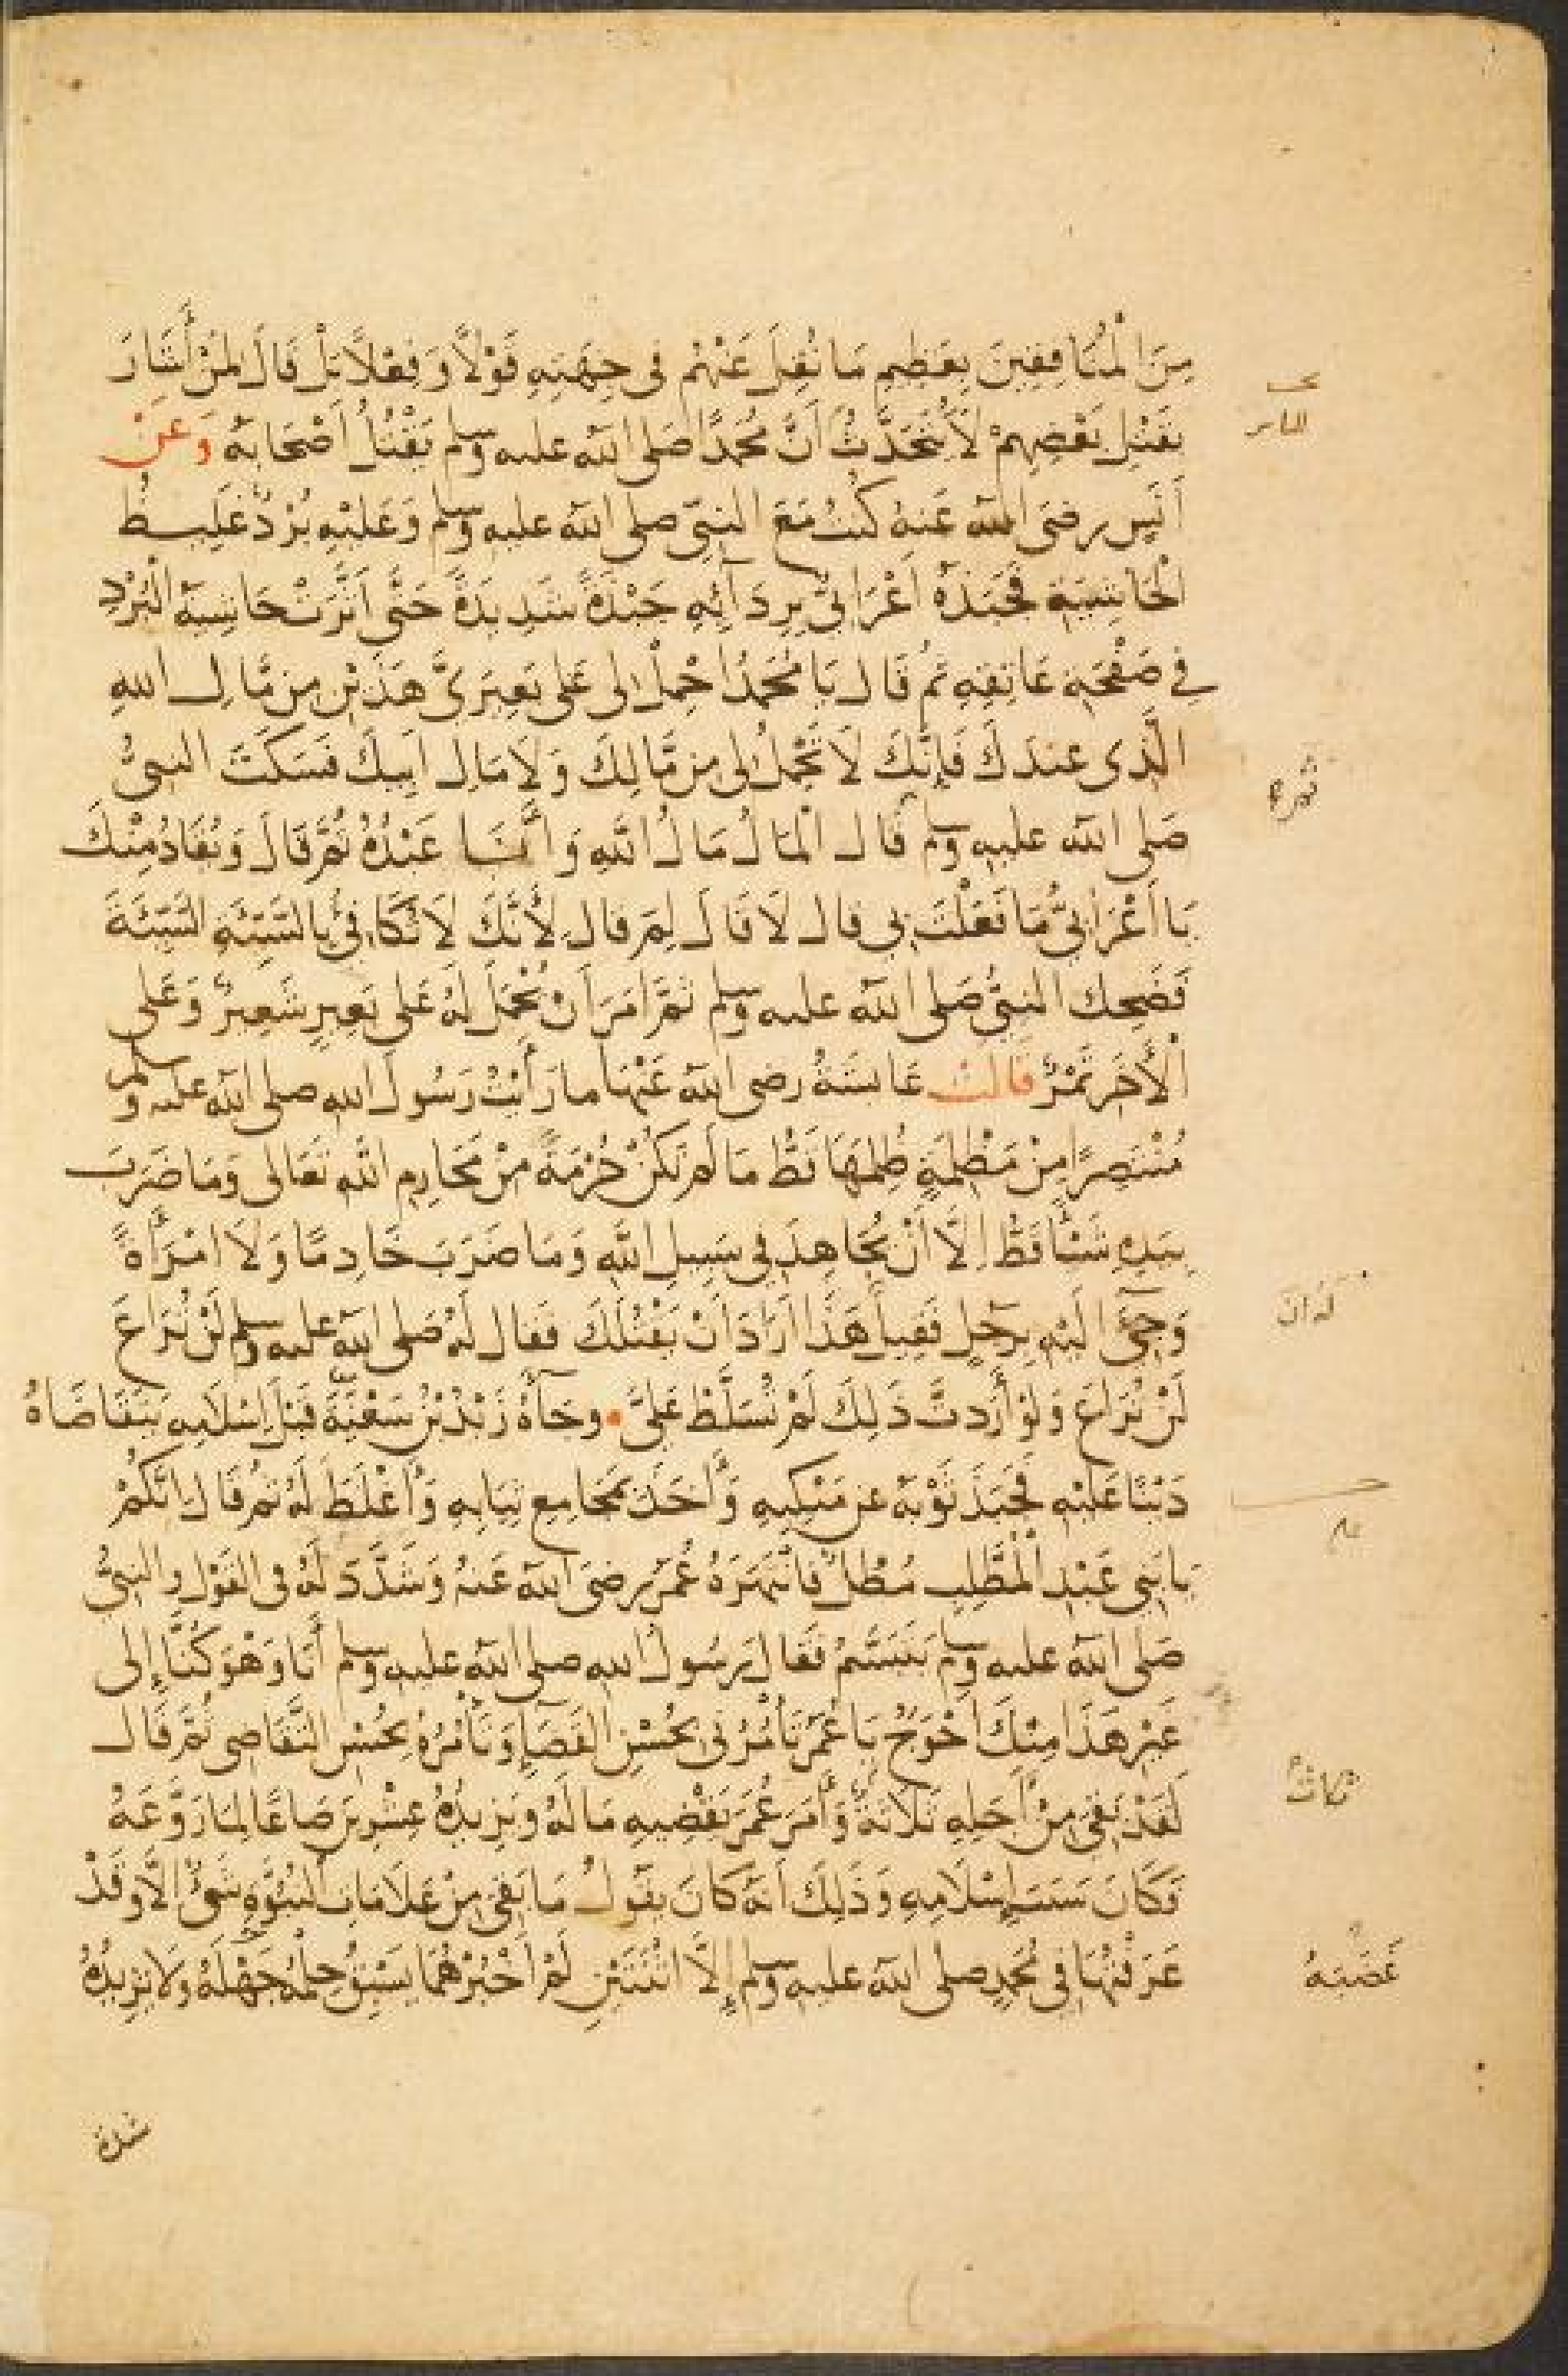 مِنَ الْمُنَافِقِينَ بِعَظِيمِ مَا نُقِلَ عَنْهُمْ فِي جِهَتِهِ قَوْلًا وَفِعْلًا بَلْ قَالَ لِمَنْ أَشَارَ
بِقَتْلِ بَعْضِهِمْ لَا يُتَحَدَّثُ أَنَّ مُحَمَّدًا صَلى الله عليه وسلم يَقْتُلُ أَصْحَابَهُ وَعَنْ
أَنَسٍ رضى الله عَنهُ كُنتُ مَعَ النبِيّ صلى الله عليه وسلم وَعَليْهِ بُرْدٌ غَلِيظُ
الْحَاشِيَةِ فَجَبَذَهُ أَعْرَابِيٌّ بِرِدَآئِهِ جَبْذَةً شَدِيدَةً حَتَّى أَثَّرَتْ حَاشِيَةُ الْبُرْدِ
فِي صَفْحَةِ عَاتِقِهِ ثُمَّ قَالَ يَا مُحَمَّدُ احْمِلْ لى عَلى بَعِيرَىَّ هَذَيْنِ مِن مَّالِ اللهِ
الَّذِى عِندَكَ فَإِنَّكَ لَا تَحْمِلُ لى مِن مَّالِكَ وَلَا مَالِ أَبِيكَ فَسَكَتَ النبىُّ
صَلى الله عليه وسلم قَالَ الْمَالُ مَالُ اللَّهِ وَأَنَا عَبْدُهُ ثُمَّ قَالَ وَيُقَادُ مِنْكَ
يَا أَعْرَابِىُّ مَا فَعَلْتَ بِى قال لَا قَالَ لِمَ قال لِأَنَّكَ لَا تُكَافِئُ بِالسَّيِّئَةِ السَّيِّئَةَ
فَضَحِكَ النبىُّ صَلى الله عليه وسلم ثمَّ أَمَرَ أَنْ يُحْمَلَ لَهُ عَلى بَعِيرٍ شَعِيرٌ وَعَلى
الْآخَرِ تَمْرٌ قَالَتْ عَائِشَةُ رضى الله عَنْهَا ما رَأَيْتُ رَسُولَ اللهِ صلى الله عليه وسلم
مُنْتَصِرًا مِنْ مَظْلَمَةٍ ظُلِمَهَا قَطُّ مَا لَمْ تَكُنْ حُرْمَةً مِنْ مَحَارِمِ اللهِ تَعَالى وَمَا ضَرَبَ
بِيَدِهِ شَيْئًا قَطُّ إِلَّا أَنْ يُجَاهِدَ فِى سَبِيلِ اللَّهِ وَمَا ضَرَبَ خَادِمًا وَلَا امْرَأَةً
وَجِىءَ إِلَيْهِ بِرَجُلٍ فَقِيلَ هَذَا أَرَادَ أَنْ يَقْتُلَكَ فَقال لَهُ صَلى الله عليه وسلم لَنْ تُرَاعَ
لَنْ تُرَاعَ وَلَوْ أَرَدتَّ ذَلِكَ لَمْ تُسَلَّطْ عَلَىَّ • وجَآءَهُ زَيْدُ بْنُ سَعْنَةَ قَبْلَ إِسْلَامِهِ يَتَقَاضَاهُ
دَيْنًا عَلَيْهِ فَجَبَذَ ثَوْبَهُ عَن مَنْكِبِهِ وَأَخَذَ بِمَجَامِعِ ثِيَابِهِ وَأَغْلَظَ لَهُ ثُمَّ قَالَ إِنَّكُمْ
يَا بَنِى عَبْدِ الْمُطَّلِبِ مُطْلٌ فَانْتَهَرَهُ عُمَرُ رضىَ الله عَنهُ وَشَدَّدَ لَهُ فى القَوْلِ والنبىُّ
صَلى الله عليه وسلم يَتَبَسَّمُ فَقَالَ رَسُولُ اللهِ صلى الله عليه وسلم أَنَا وَهُوَ كُنَّا إِلى
غَيْرِ هَذَا مِنْكَ أَحْوَجَ يَا عُمَرُ تَأْمُرُنى بِحُسْنِ القَضَاءِ وَتَأْمُرُهُ بِحُسْنِ التَّقَاضِى ثُمَّ قَالَ
لَقَدْ بَقِىَ مِنْ أَجَلِهِ ثَلَاثَةٌ وَأَمَرَ عُمَرَ يَقْضِيهِ مَا لَهُ وَيَزِيدُهُ عِشْرِينَ صَاعًا لِمَا رَوَّعَهُ
فَكَانَ سَبَبَ إِسْلَامِهِ وَذَلِكَ أَنَّهُ كَانَ يَقُولُ مَا بَقِىَ مِنْ عَلَامَاتِ النُّبُوَّةِ شَىْءٌ إِلَّا وَقَدْ
عَرَفْتُهَا فِى مُحَمَّدٍ صلى الله عليه وسلم إِلَّا اثْنَتَيْنِ لَمْ أَخْبُرْهُمَا يَسْبِقُ حِلْمُهُ جَهْلَهُ وَلَا يَزِيدُهُ
شدة